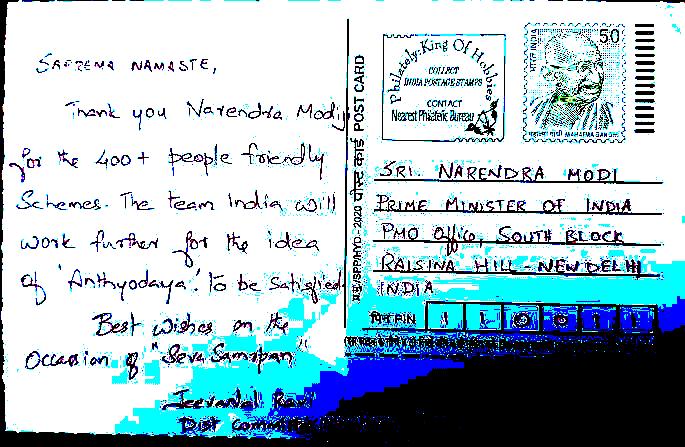 SAPREMA NAMASTE,
Thank you Narendra Modiji
for the 400+ people friendly
Schemes. The team India will
work further for the idea
of 'Anthyodaya' to be Satisfied.
Best wishes on the
Occasion of "Seva Samapan"
Dist
पोस्ट कार्ड POST CARD
Philately: King Of Hobbies
COLLECT
INDIA POSTAGE STAMPS
CONTACT
Nearest Philatelic Bureau
50
SRI. NARENDRA MODI
PRIME MINISTER OF INDIA
PMO Office, SOUTH BLOCK
RAISINA HILL - NEW DELHI
INDIA
पिन PIN 110011